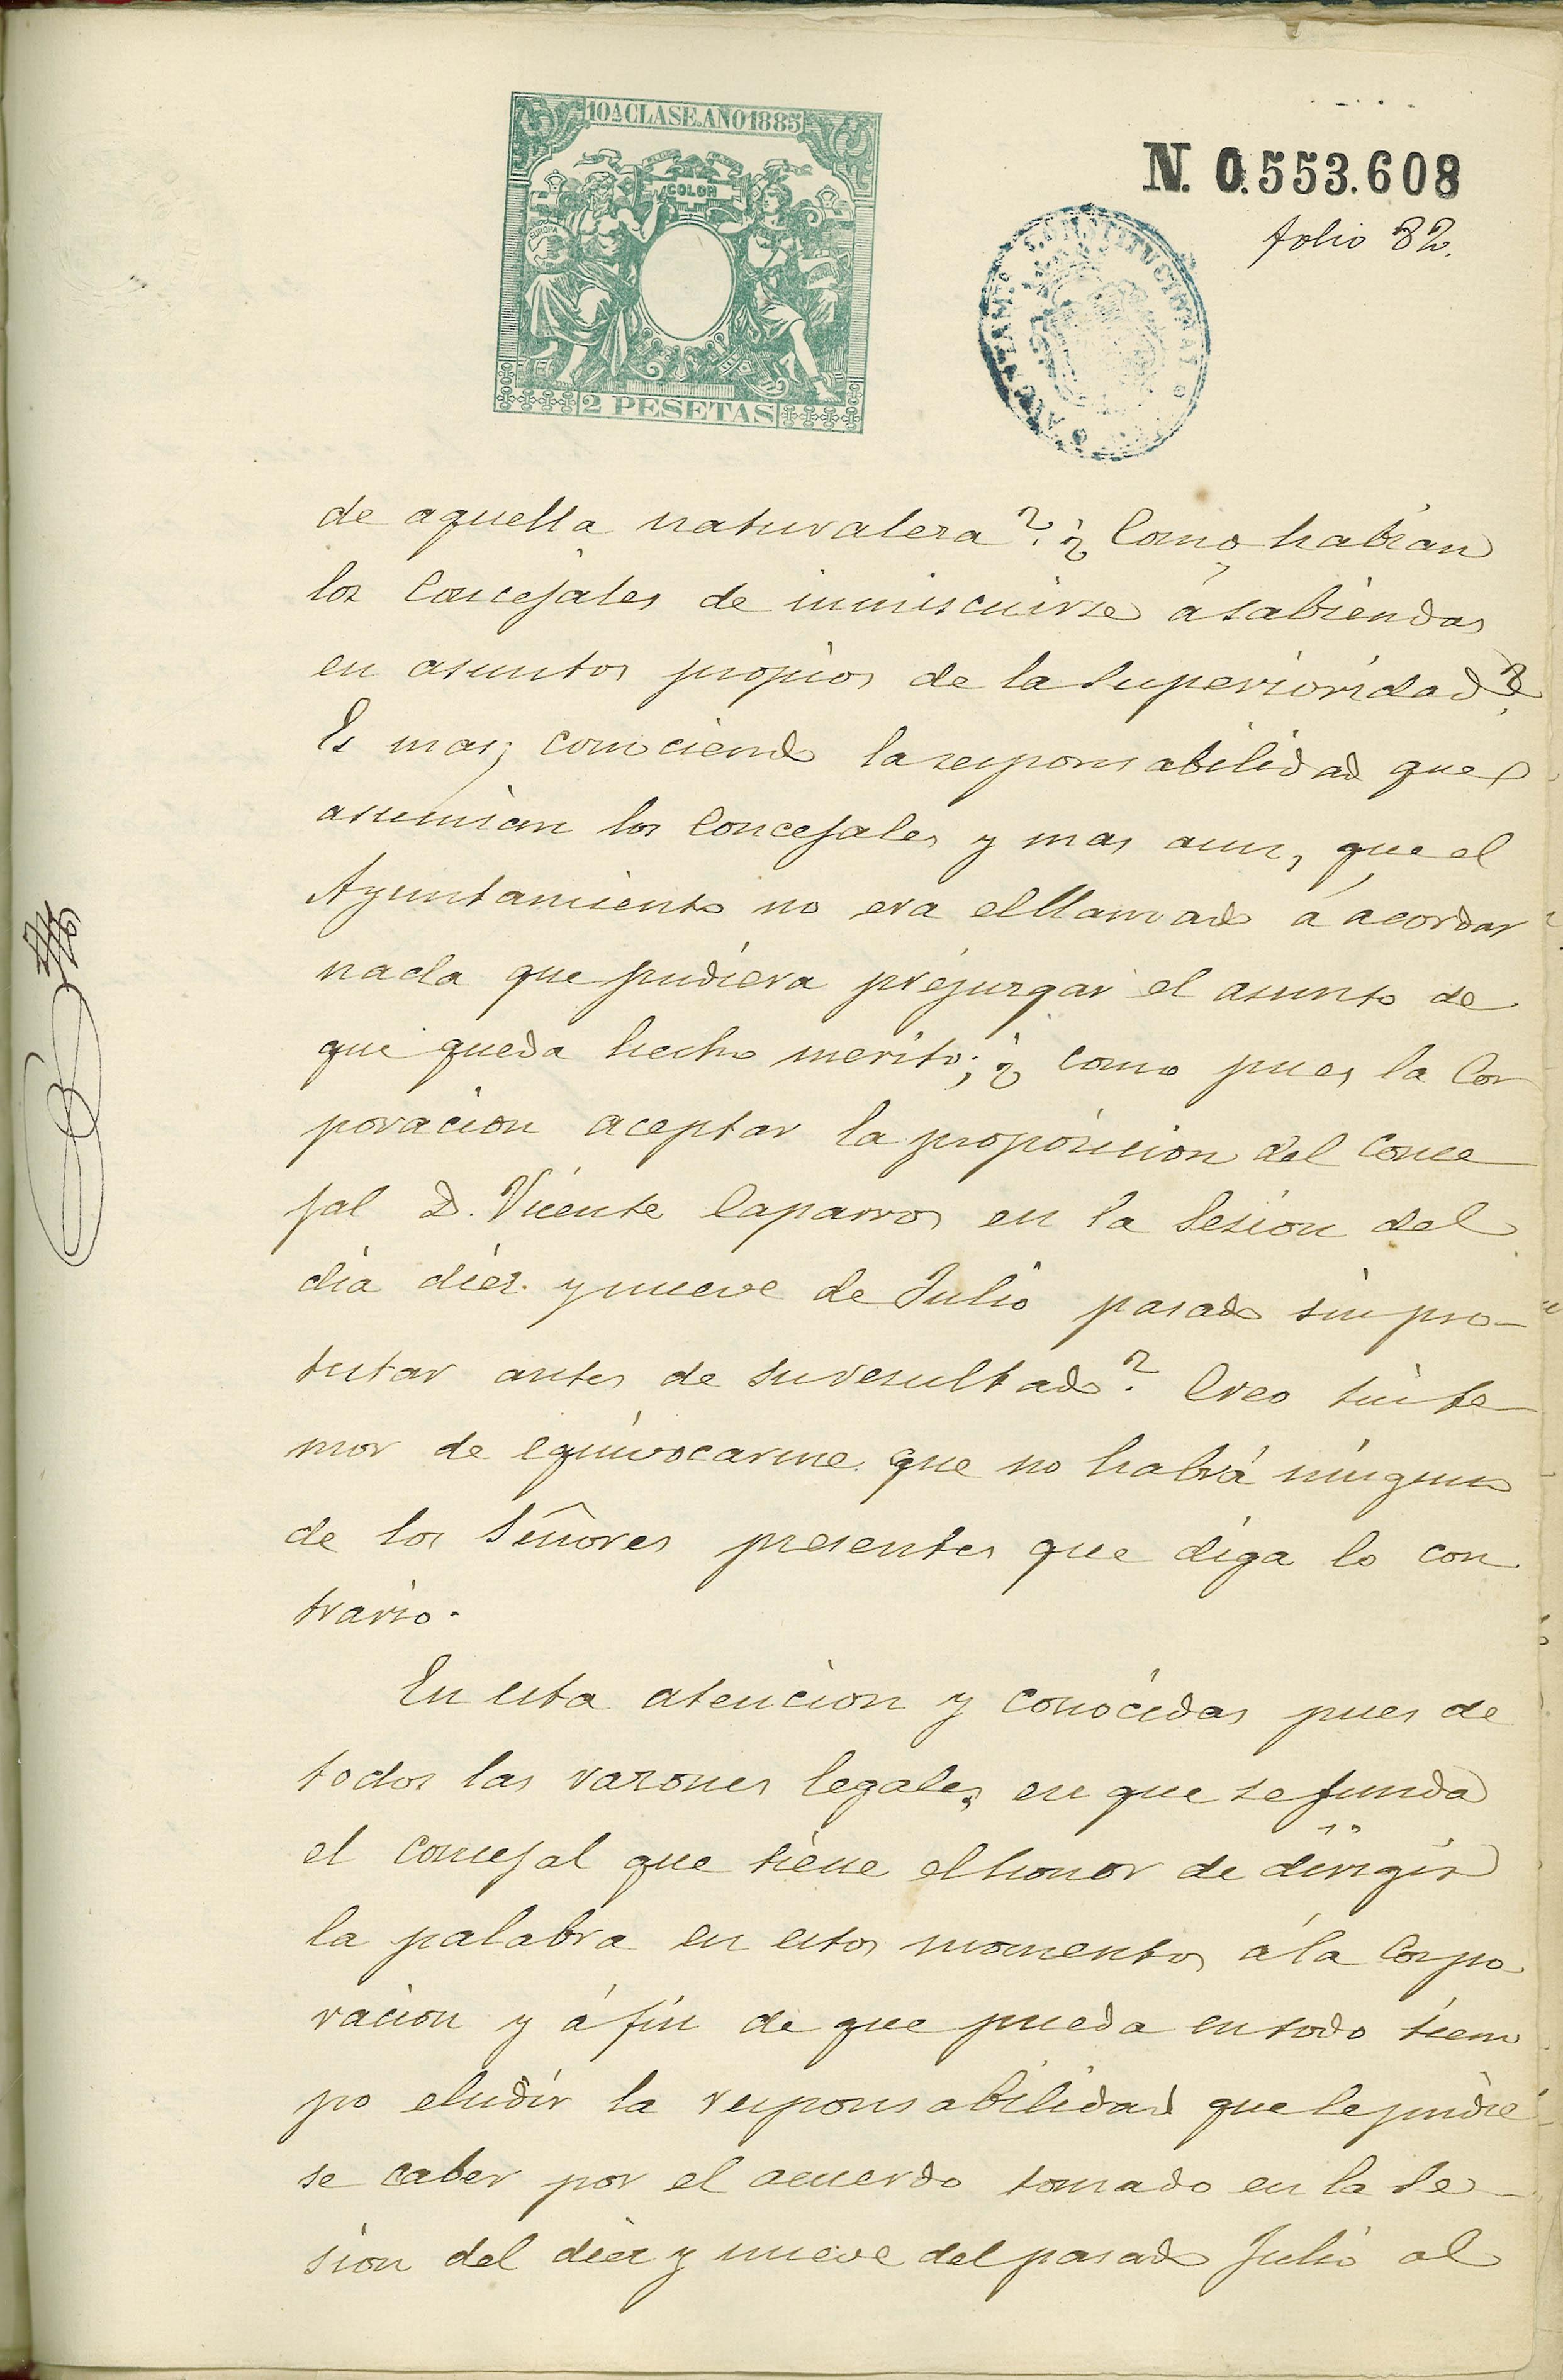 10ª CLASE. AÑO 1885
COLON
EUROPA
2 PESETAS
N. 0.553.608
folio 82.
CONSTITUCIONAL
de aquella naturaleza? ¿Como habian
los Concejales de inmiscuirse á sabiendas
en asuntos propios de la Superioridad?
Es mas; conociendo la responsabilidad que
asumian los Concejales y mas aun, que el
Ayuntamiento no era el llamado á acordar
nada que pudiera préjuzgar el asunto de
que queda hecho merito; ¿como pues la Cor
poracion aceptar la proposicion del Conce
jal D. Vicente Caparros en la Sesion del
dia diez y nueve de Julio pasado sin pro-
testar antes de su resultado? Creo sin te
mor de equivocarme que no habrá ninguno
de los Señores presentes que diga lo con
trario.
En esta atencion y conocidas pues de
todos las razones legales, en que se funda
el concejal que tiene el honor de dirigir
la palabra en estos momentos á la Corpo
racion y á fin de que pueda en todo tiem
po eludir la responsabilidad que le pudie
se caber por el acuerdo tomado en la Se-
sion del diez y nueve del pasado Julio al